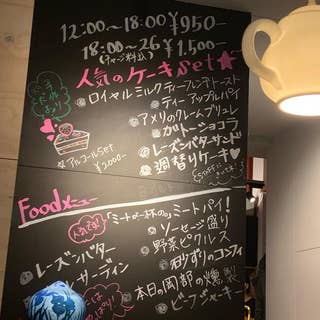 12:00〜18:00 ¥950-
18:00〜26 ¥1.500-
(チャージ料込)
人気のケーキset★
ロイヤルミルクティーフレンチトースト
ティーアップルパイ
アメリのクレームブリュレ
ガトーショコラ
レーズンバターサンド
週替りケーキ♥
アルコールset
¥2,000-
Foodメニュー
人気です!
「ミートが一杯の」ミートパイ!
ソーセージ盛り
野菜ピクルス
砂ずりのコンフィ
本日の岡部の燻製
ビーフジャーキー
レーズンバター
サーディン